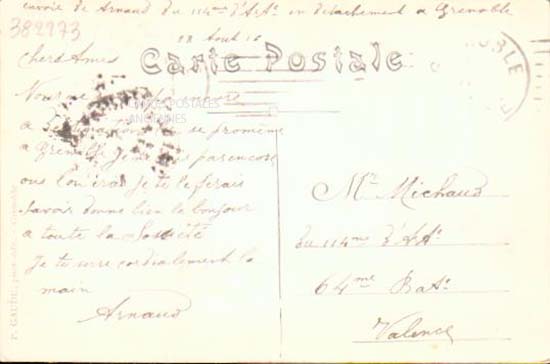 envoie de Arnaud du 114me d'A.A. en détachement a Grenoble
382973
22 Aout 16
Chers Amis
Carte Postale
CARTES POSTALES
ANCIENNES
Nous
a se promène
a Grenoble Je ne pas encore
ou l'on ira Je te le ferais
savoir donne bien le bonjour
a toute la Société
Je te serre cordialement la
main
Arnaud
Mr Michaud
du 114me d'A.A.
64me Bat.
Valence